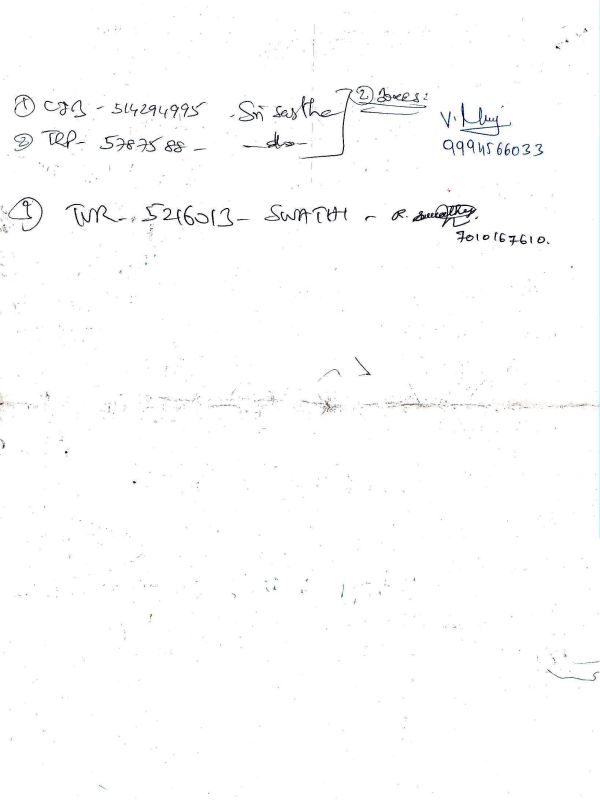 ① CJB - 514294995 - Sri sastha
② TRP - 5787588 - -do-
② Boxes:
V.
9994566033
① TVR - 5216013 - SWATHI - R.
7010167610.